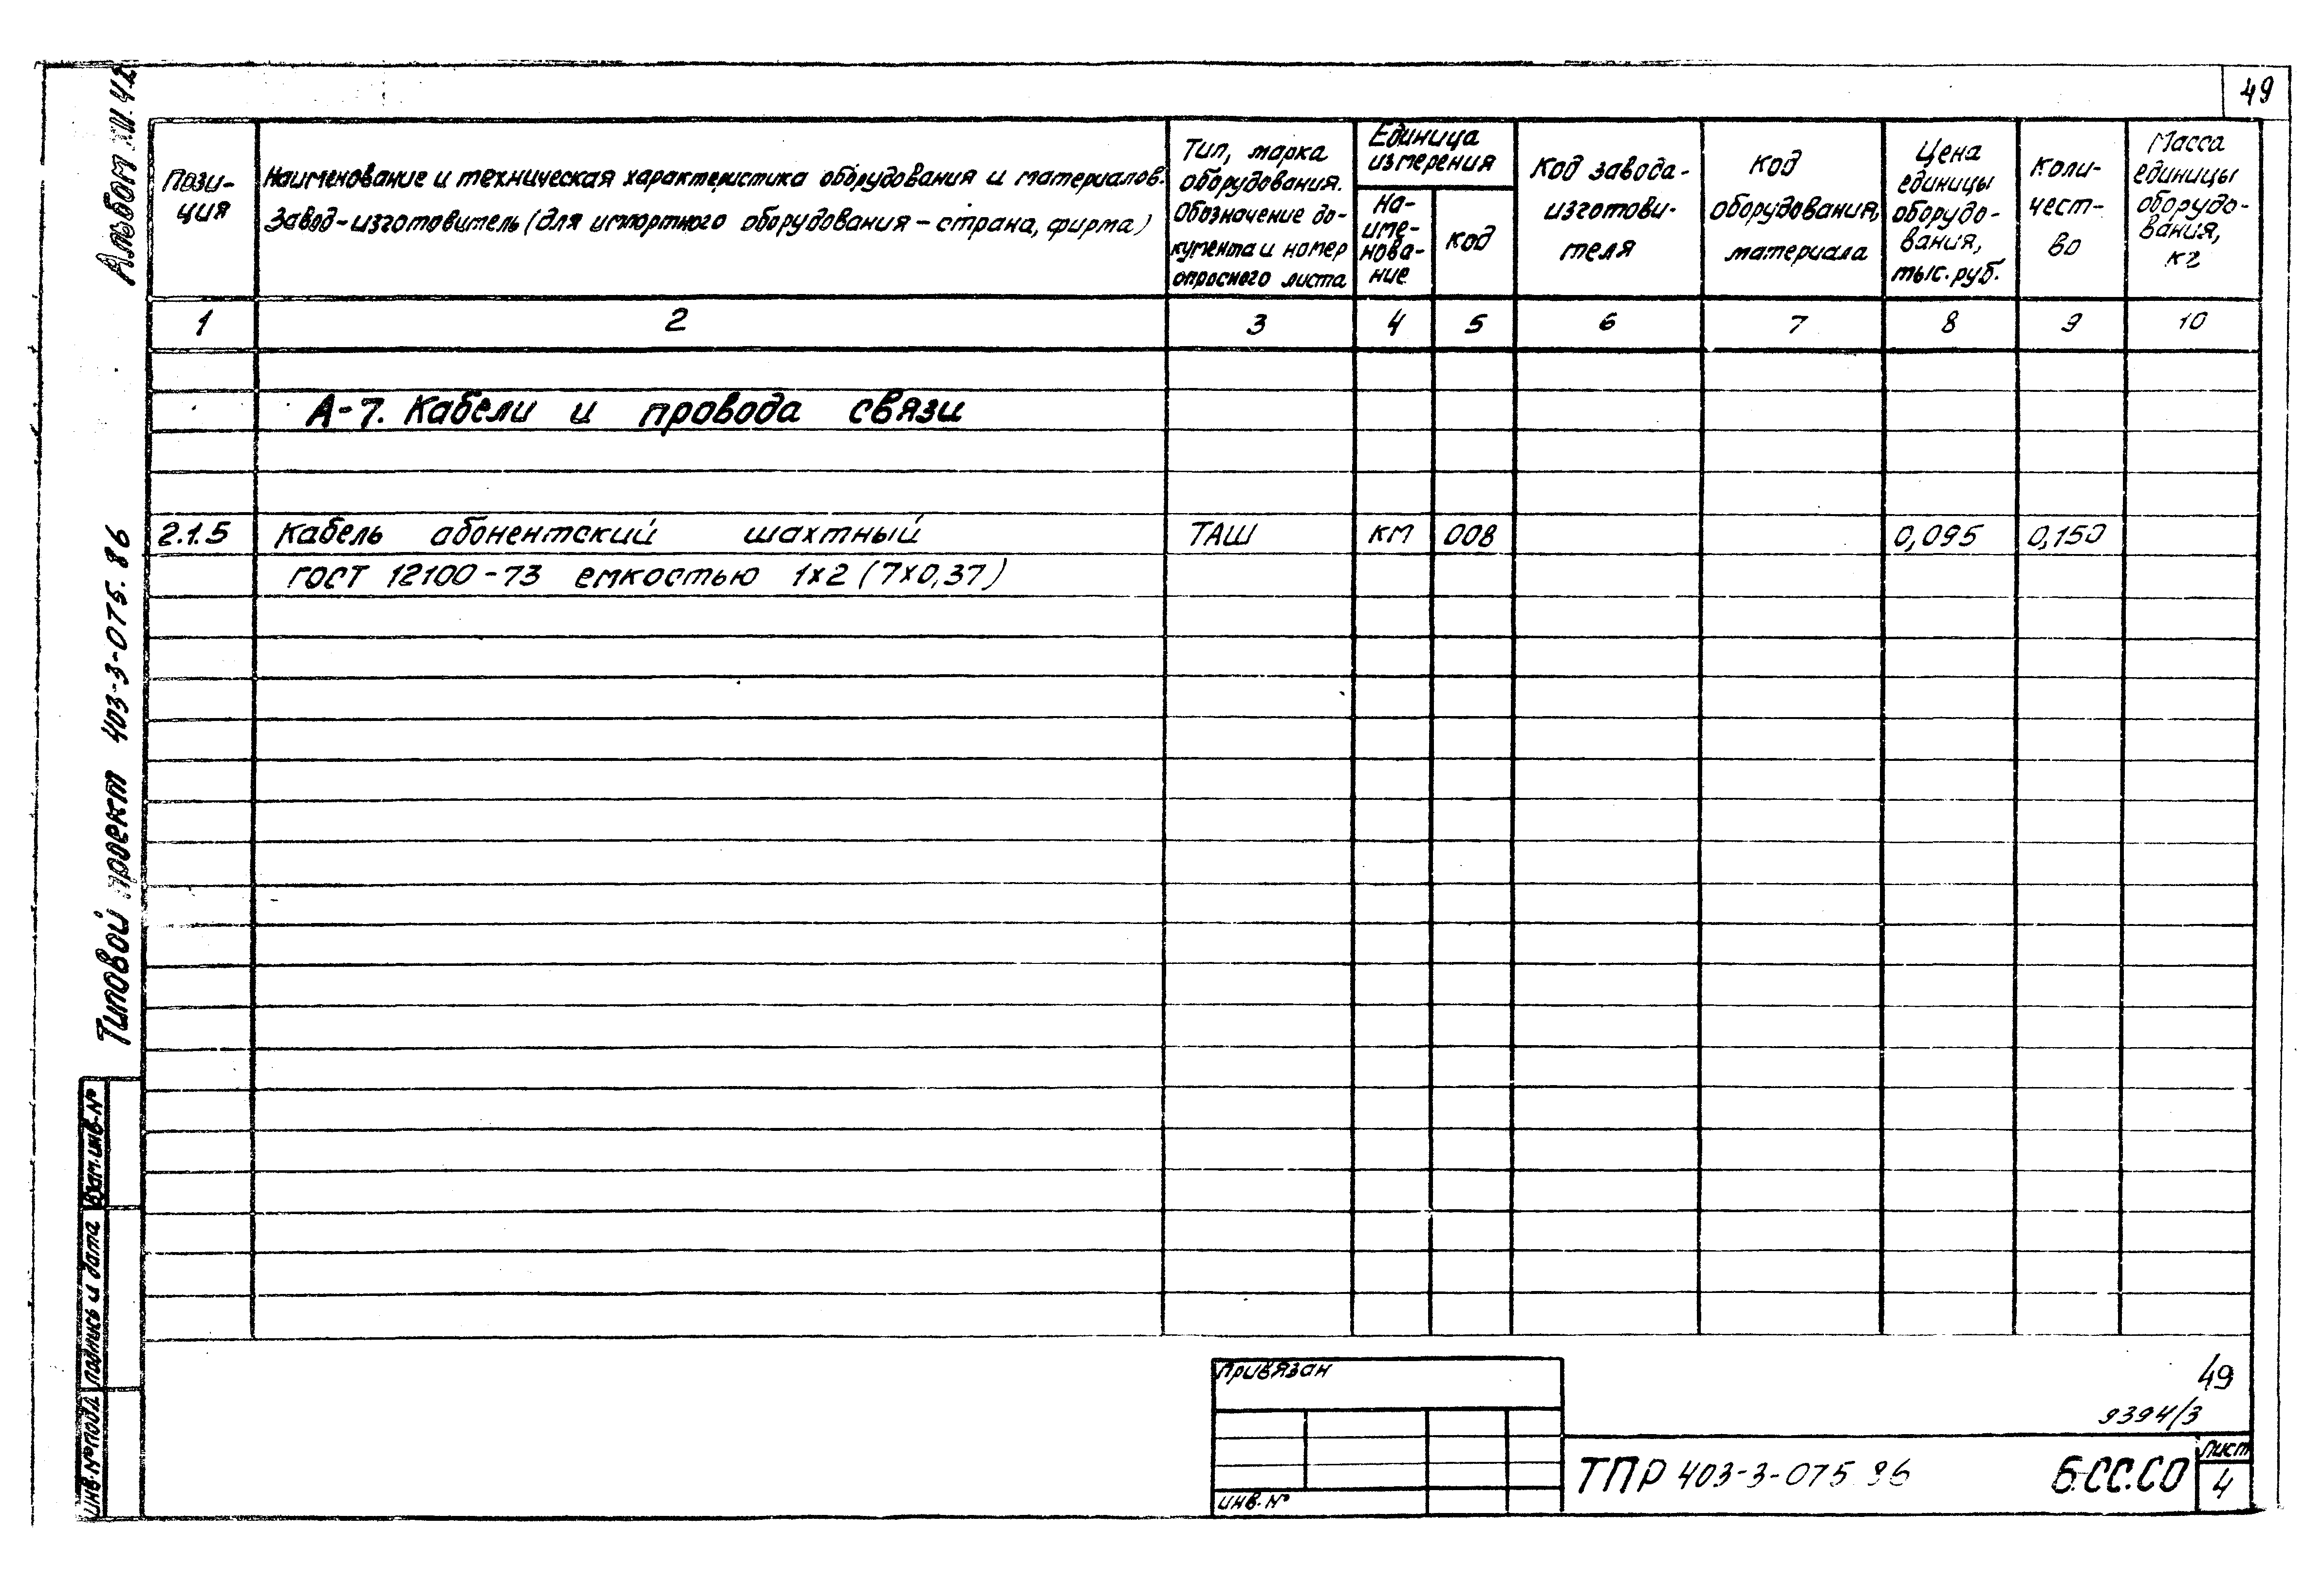 49
Альбом
Типовой проект 403-3-075.86
Пози-
ция
Наименование и техническая характеристика оборудования и материалов.
Завод-изготовитель (для импортного оборудования - страна, фирма)
Тип, марка
оборудования.
Обозначение до-
кумента и номер
опросного листа
Единица
измерения
На-
име-
нова-
ние
код
Код завода-
изготови-
теля
Код
оборудования,
материала
Цена
единицы
оборудо-
вания,
тыс. руб.
Коли-
чест-
во
Масса
единицы
оборудо-
вания,
кг
1 2 3 4 5 6 7 8 9 10
А-7. Кабели и провода связи
2.1.5 Кабель абонентский шахтный ТАШ км 008 0,095 0,150
ГОСТ 12100-73 емкостью 1х2 (7х0,37)
Взам.инв.№
Подпись и дата
Инв.№ подл
Привязан
Инв.№
49
9394/3
ТПР 403-3-075.86 Б.СС.СО
Лист
4